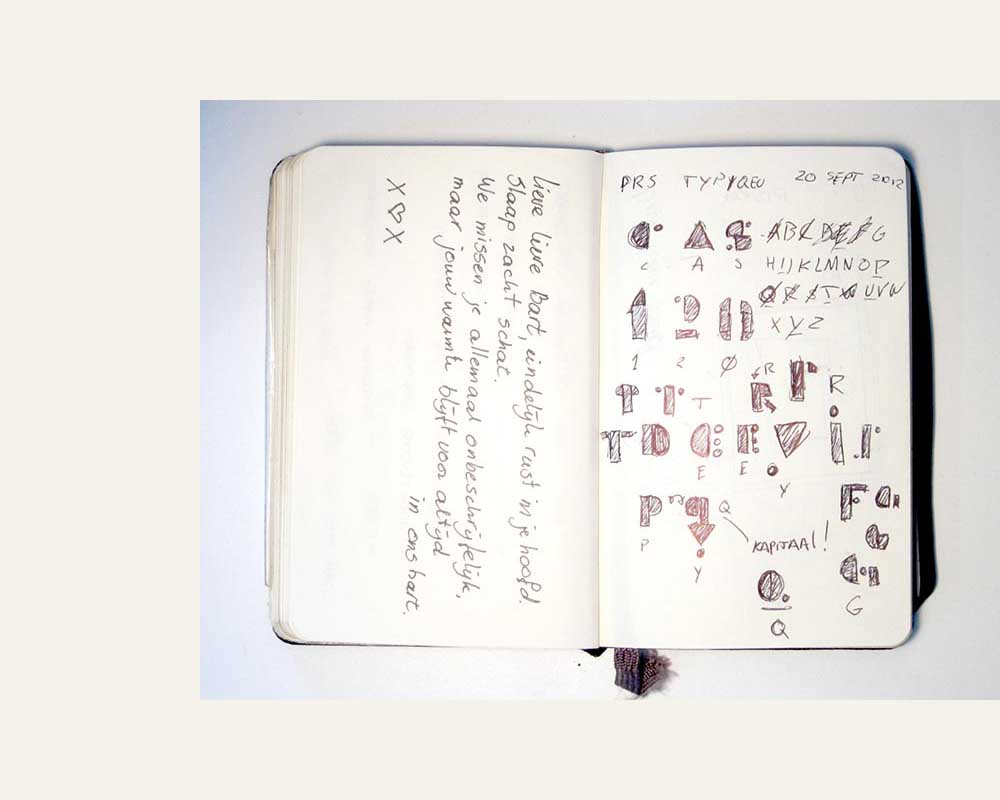 Lieve lieve Bart, eindelijk rust in je hoofd.
Slaap zacht schat.
We missen je allemaal onbeschrijfelijk,
maar jouw warmte blijft voor altijd
in ons hart.
X ♡ X
PRS TYPIQEU 20 SEPT 2012
C A S
ABCDEFG
HIJKLMNOP
QRSTUVW
XYZ
1 2 Ø
T R R
E E Y
P Q
KAPITAAL!
Y
G
Q